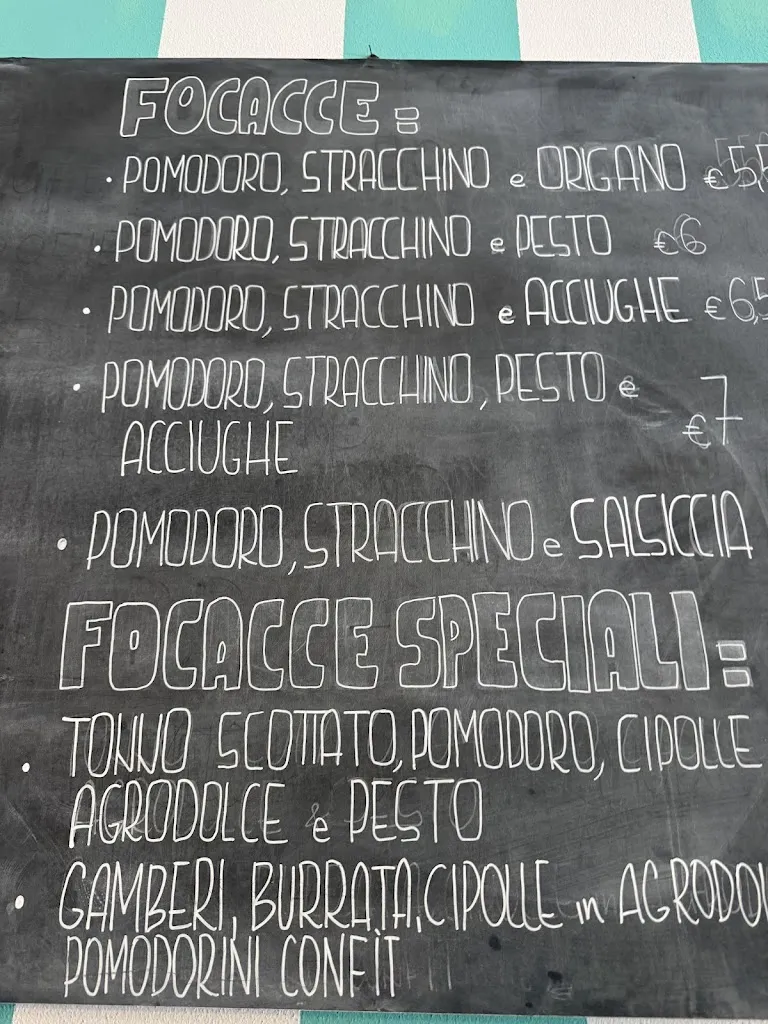 FOCACCE =
· POMODORO, STRACCHINO e ORIGANO €5,5
· POMODORO, STRACCHINO e PESTO €6
· POMODORO, STRACCHINO e ACCIUGHE €6,5
· POMODORO, STRACCHINO, PESTO e €7
ACCIUGHE
· POMODORO, STRACCHINO e SALSICCIA
FOCACCE SPECIALI =
· TONNO SCOTTATO, POMODORO, CIPOLLE
AGRODOLCE e PESTO
· GAMBERI, BURRATA, CIPOLLE in AGRODOL
POMODORINI CONFÌT